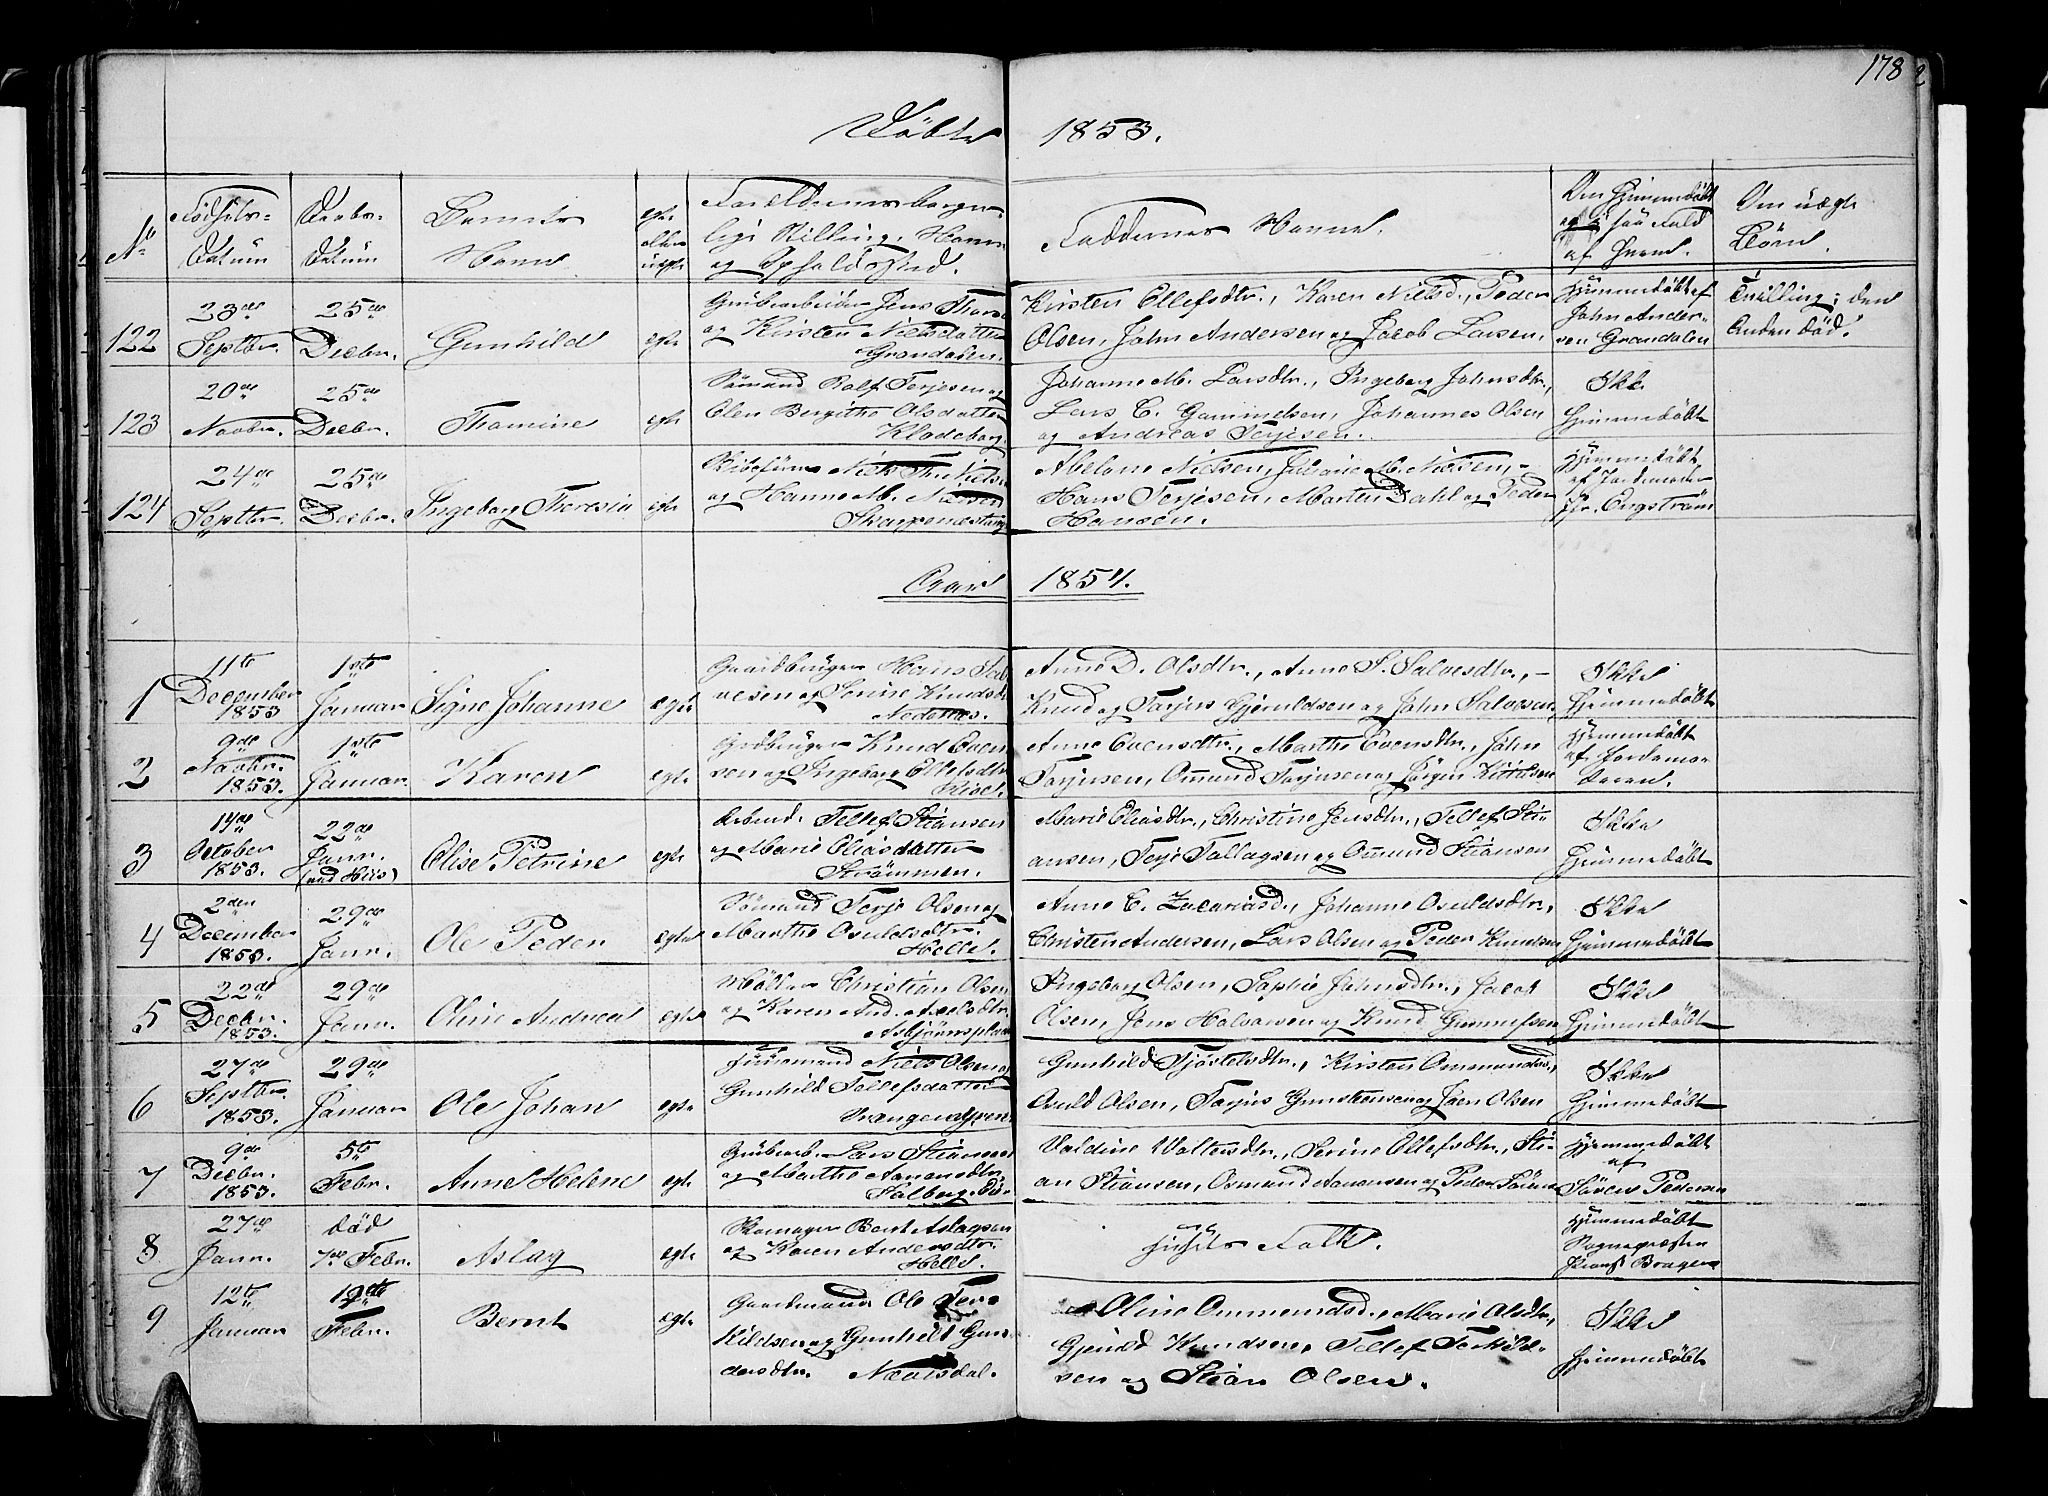 178
Døbte 1853.
No
Fødsels-
Datum
Daabs-
Datum
Barnets
Navn
egte
eller
uegte
Forældrenes borger-
lige Stilling, Navne
og Opholdssted.
Faddernes Navne.
Om Hjemmedøbt
og i saa Fald
af hvem.
Om uægte
Børn.
122
23de
Septbr.
25de
Decbr.
Gunhild
egte
Grubearbeider Jens
og Kirsten Nielsdatter
Grandalen.
Kirsten Ollefsdtr., Karen Nielsd., Peder
Olsen, John Andersen og Jacob Larsen.
Hjemmedøbt af
John Ander-
sen Grandalen
Tvilling; den
Anden død.
123
20de
Novbr.
25de
Decbr.
Thomine
egte
Sømand Rolf Terjesen og
Elen Bergithe Olsdatter
Klodeborg.
Johanne M. Larsdtr., Ingeborg Johnsdtr.,
Lars C. Gammelsen, Johannes Olsen
og Andreas Terjesen.
Ikke
Hjemmedøbt
124
24de
Septbr.
25de
Decbr.
Ingeborg Theresia
egte
Niels
og Hanne M. Nielsen
Abelone Nielsen, M. Nielsen, -
Hans Terjesen, Morten Dahl og Peder
Hansen.
Hjemmedøbt
af Jordemoder
Engstrøm
Aar 1854.
1
11te
December
1853
1ste
Januar
Signe Johanne
egte
Gaardbruger Hans Sal-
vesen og Serine Knudsdtr
Nedenes.
Anne D. Olsdtr., Anne S. Salvesdtr., -
Knud og Tarjus Gjeruldsen og John Salvesen
Ikke
Hjemmedøbt
2
9de
Novbr.
1853.
1ste
Januar
Karen
egte
Grdbruger Knud Even-
sen og Ingeborg Ellefsdtr
Anne Evensdtr., Marthe Evensdtr., John
Tarjusen, Omund Tarjusen og Jørgen Kittelsen
Hjemmedøbt
af Jordemo-
deren.
3
14de
October
1853.
22de
Janr.
(ved Hiis)
Elise Petrine
egte
Arbeid. Tellef Stiansen
og Marie Eliasdatter
Strømmen.
Marie Eliasdtr., Christine Jensdtr., Tellef Sti-
ansen, Terje Tallagsen og Omund Stiansen
Ikke
Hjemmedøbt
4
2den
December
1853.
29de
Janr.
Ole Peder
egte
Sømand Terje Olsen og
Marthe Osuldsdtr.
Helle.
Anne C. Zacariasd., Johanne Osuldsdtr.,
Christen Andersen, Lars Olsen og Peder Knudsen
Ikke
Hjemmedøbt
5
22de
Decbr.
1853.
29de
Janr.
Oline Andrea
egte
Møller Christian Olsen
og Karen And. Axelsdtr.
Asbjørnsplads
Ingeborg Olsen, Sophie Johnsdtr., Jacob
Olsen, Jens Halvorsen og Knud Gunnufsen
Ikke
Hjemmedøbt
6
27de
Septbr.
1853.
29de
Januar
Ole Johan
egte
Huusmand Niels Olsen og
Gunhild Tellefsdatter
Gunhild Tjøstelsdtr., Kirsten Ommundsd.,
Osuld Olsen, Tarjus Gunstensen og Joen Olsen
Ikke
Hjemmedøbt
7
9de
Decbr.
1853.
5te
Febr.
Anne Helene
egte
Grubearb. Lars Stiansen
og Marthe Aanensdtr.
Solberg.
Valdine Woltersdtr., Serine Ollefsdtr., Sti-
an Stiansen, Osmund Aanensen og Peder
Hjemmedøbt
af
Søren Pedersen
8
27de
Janr.
død
7de Febr.
Aslag
egte
Skomager Bent Aslagsen
og Karen Andersdtr.
Helle.
Husets Folk.
Hjemmedøbt
Sognepræsten
9
12te
Januar
19de
Febr.
Bernt
egte
Gaardmand Ole Ter-
kildsen og Gunhild Gun-
dersdtr. Nævisdal.
Oline Ommundsd., Marie Olsdtr.,
Gjeruld Knudsen, Tellef Terkild-
sen og Stian Olsen.
Ikke
Hjemmedøbt